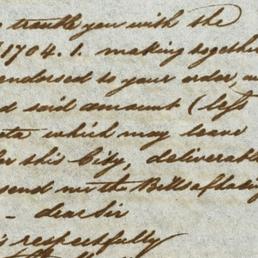 trouble you with the
1704.1. making together
endorsed to your order, 
said amount (left
which may leave
for this City, deliverable
send me the Bills of lading
- dear Sir
respectfully